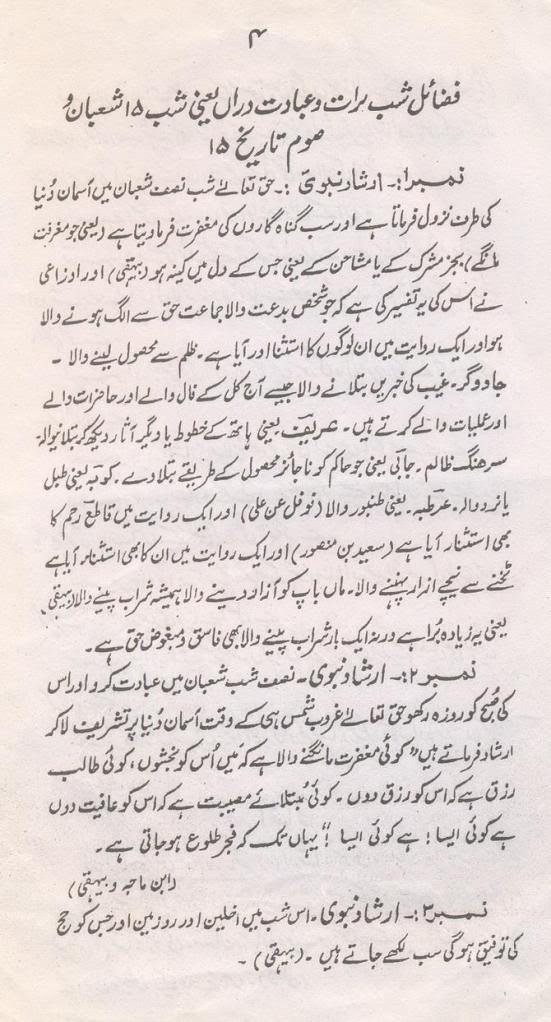 ۴
فضائل شب برات و عبادت دراں یعنی شب ۱۵ شعبان و
صوم تاریخ ۱۵
نمبر۱:۔ ارشاد نبوی :۔ حق تعالےٰ شب نصف شعبان میں آسمان دُنیا
کی طرف نزول فرماتا ہے اور سب گناہ گاروں کی مغفرت فرما دیتا ہے (یعنی جو مغفرت
مانگے) بجز مشرک کے یا مشاحن کے یعنی جس کے دل میں کینہ ہو (بیہقی) اور اوزاعی
نے اس کی یہ تفسیر کی ہے کہ جو شخص بدعت والا جماعت حق سے الگ ہونے والا
ہو اور ایک روایت میں ان لوگوں کا استثنا اور آیا ہے۔ ظلم سے محصول لینے والا ۔
جادوگر۔ غیب کی خبریں بتلانے والا جیسے آج کل کے فال والے اور حاضرات والے
اور عملیات والے کرتے ہیں۔ عریف یعنی ہاتھ کے خطوط یا دیگر آثار دیکھ کر بتلانیوالہ
سرھنگ ظالم۔ جابی یعنی جو حاکم کو ناجائز محصول کے طریقے بتلا دے۔ کوبہ یعنی طبل
یا نرد والہ۔ عرطبہ۔ یعنی طنبور والا (نوفل عن علی) اور ایک روایت میں قاطع رحم کا
بھی استثنار آیا ہے (سعید بن منصور) اور ایک روایت میں ان کا بھی استثنار آیا ہے
ٹخنے سے نیچے ازار پہننے والا۔ ماں باپ کو آزار دینے والا ہمیشہ شراب پینے والا (بیہقی)
یعنی یہ زیادہ بُرا ہے ورنہ ایک بار شراب پینے والا بھی فاسق و مبغوض حق ہے۔
نمبر۲:۔ ارشاد نبوی۔ نصف شب شعبان میں عبادت کرو اور اس
کی صُبح کو روزہ رکھو حق تعالےٰ غروب شمس ہی کے وقت آسمان دُنیا پر تشریف لا کر
ارشاد فرماتے ہیں "کوئی مغفرت مانگنے والا ہے کہ میں اُس کو بخشوں، کوئی طالب
رزق ہے کہ اس کو رزق دوں۔ کوئی مُبتلائے مصیبت ہے کہ اس کو عافیت دوں
ہے کوئی ایسا! ہے کوئی ایسا!" یہاں تک کہ فجر طلوع ہو جاتی ہے۔
(ابن ماجہ و بیہقی)
نمبر۳:۔ ارشاد نبوی۔ اس شب میں اور روز مین اور جس کو حج
کی توفیق ہوگی سب لکھے جاتے ہیں۔ (بیہقی)۔